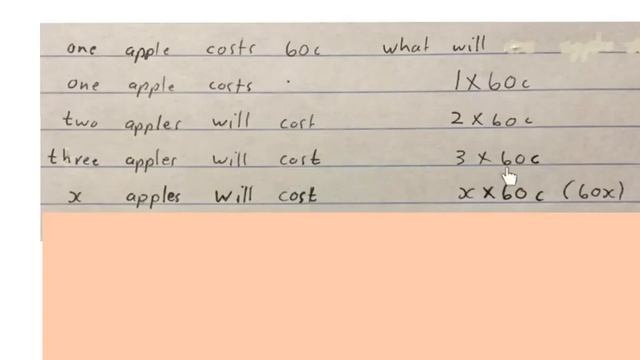 one apple costs 60c what will
one apple costs 1 × 60c
two apples will cost 2 × 60c
three apples will cost 3 × 60c
x apples will cost x × 60c (60x)